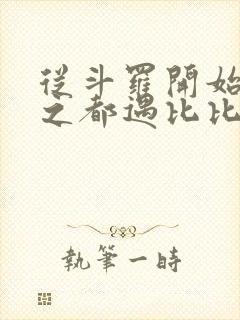 從斗羅開始
之都遇比比
執筆一時